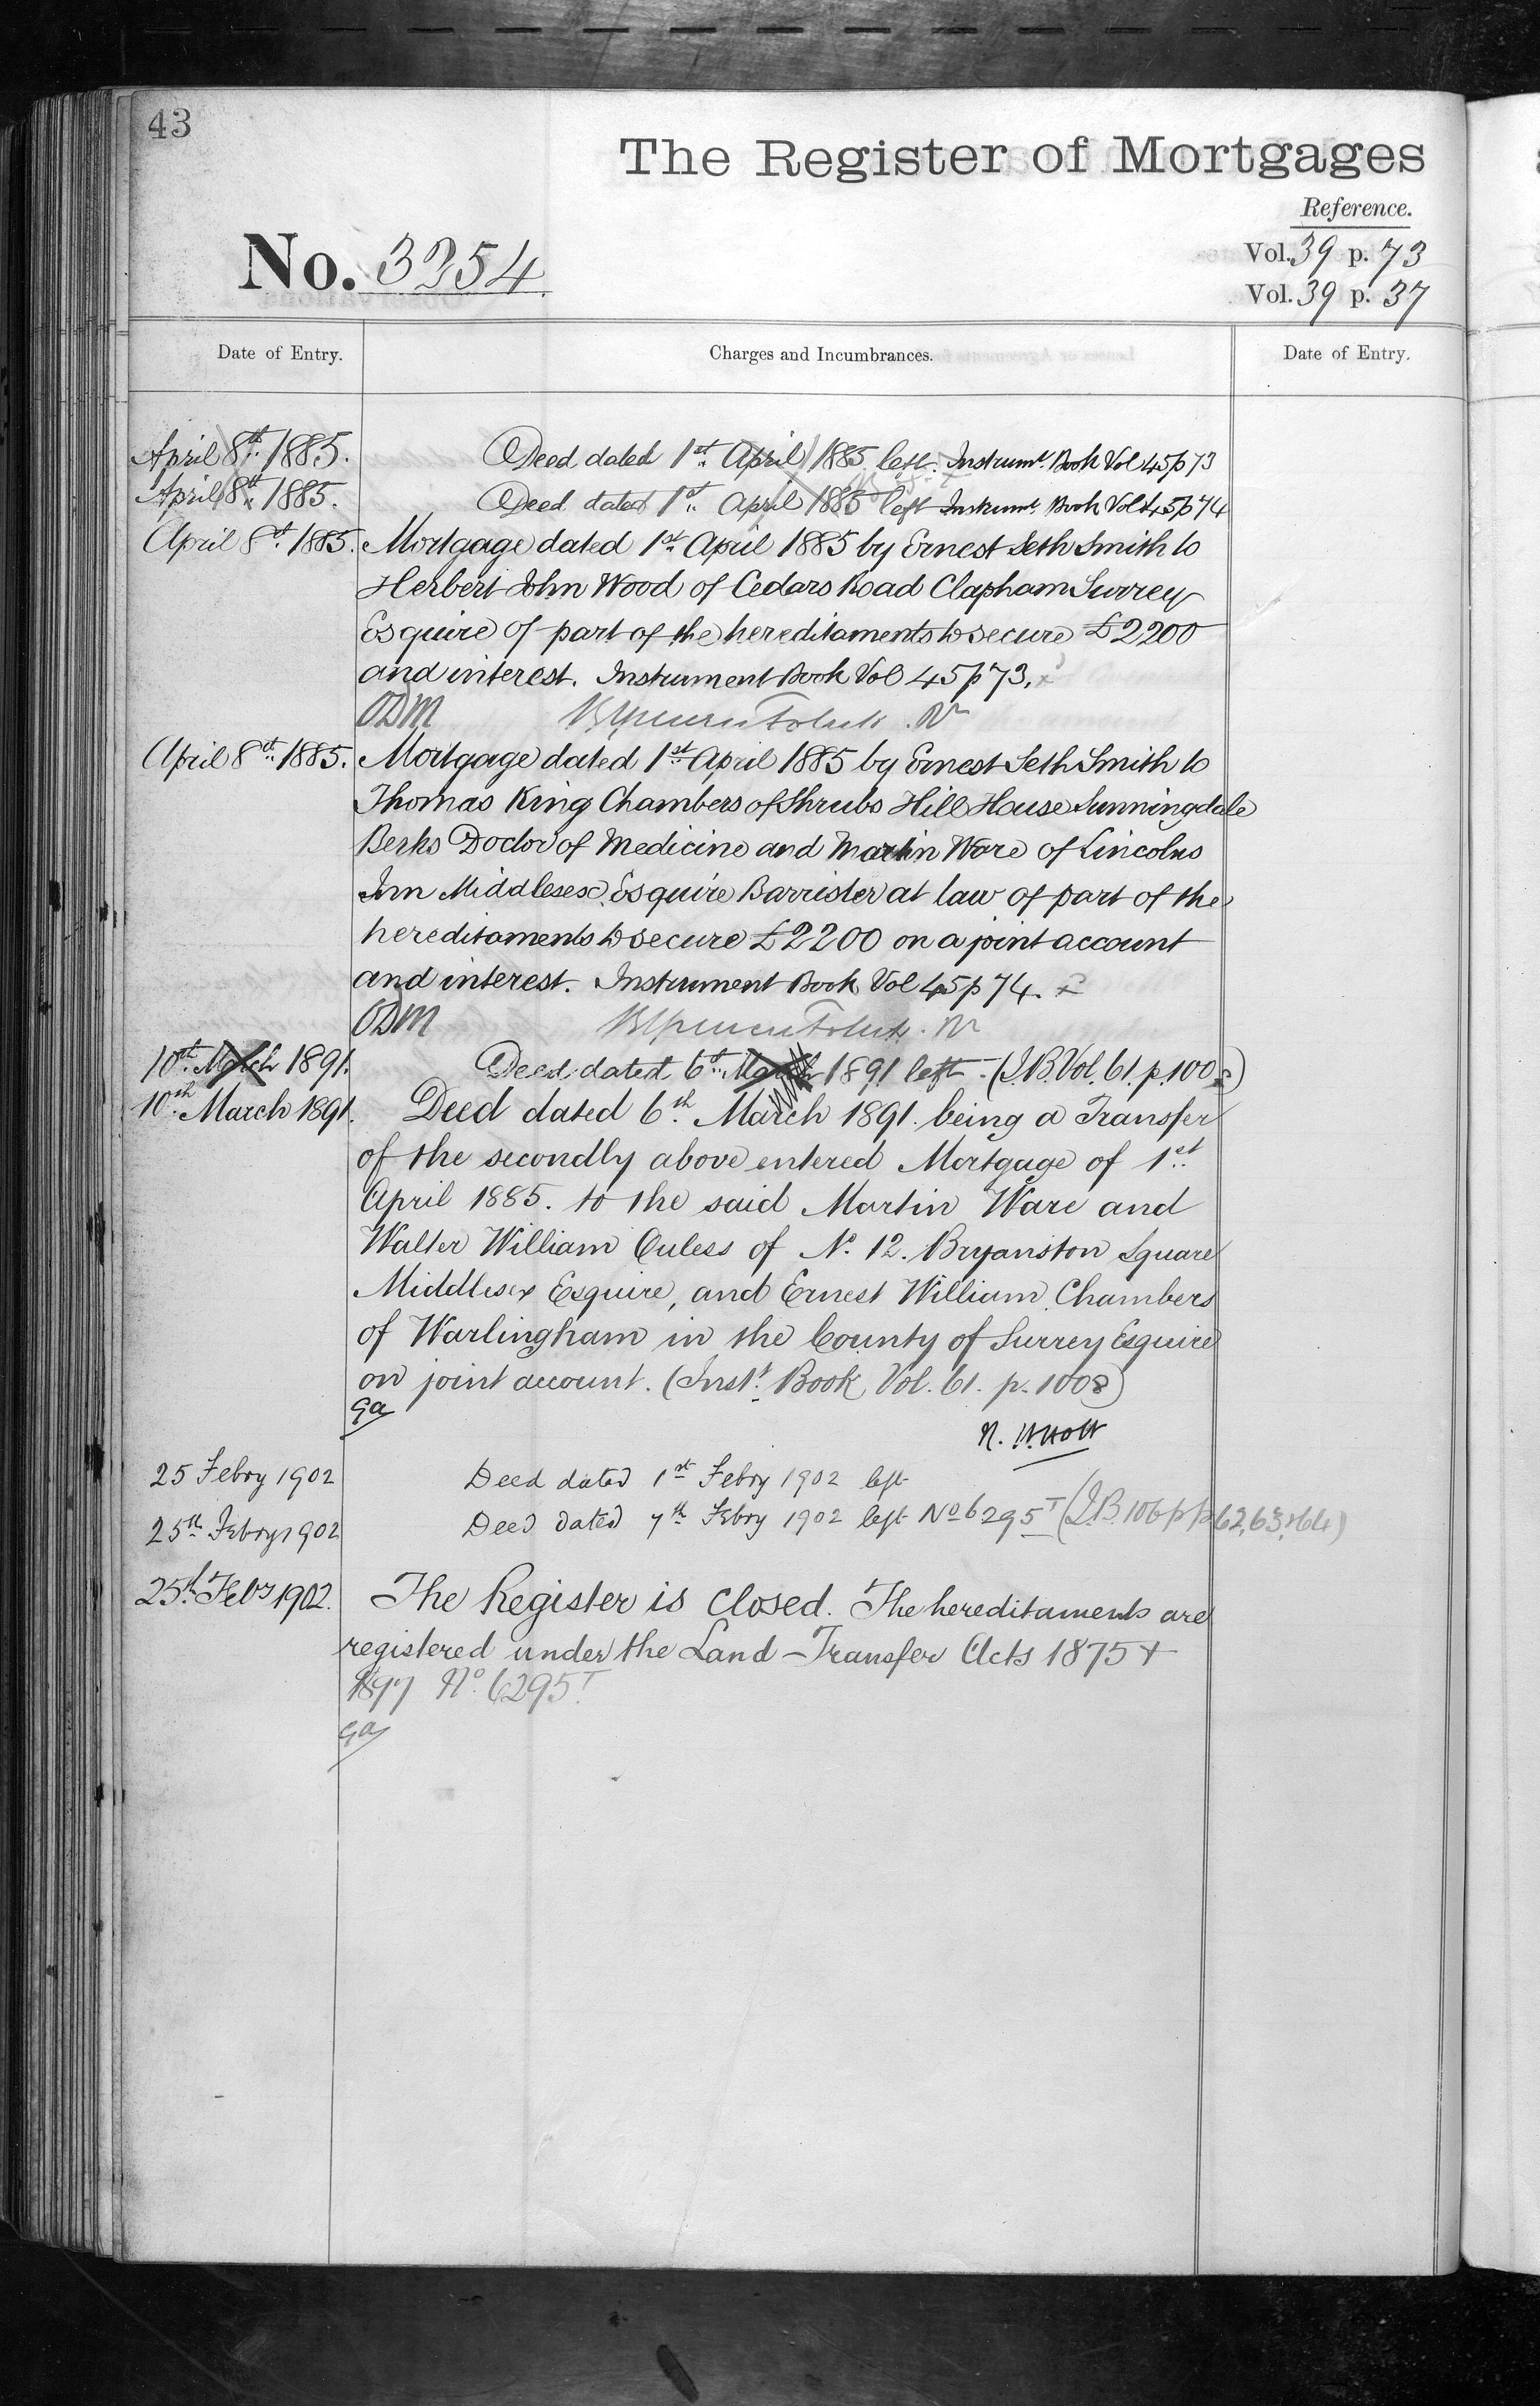 43
The Register of Mortgages
Reference.
No. 3254.
Vol. 39 p. 73
Vol. 39 p. 37
Date of Entry. Charges and Incumbrances. Date of Entry.
April 8th 1885. Deed dated 1st April 1885 left. Instrumt. Book Vol 45 p 73
April 8th 1885. Deed dated 1st April 1885 left Instrumt. Book Vol 45 p 74
April 8th 1885. Mortgage dated 1st April 1885 by Ernest Seth Smith to
Herbert John Wood of Cedars Road Clapham Surrey
Esquire of part of the hereditaments to secure £2200
and interest. Instrument Book Vol 45 p 73.
ODM
April 8th 1885. Mortgage dated 1st April 1885 by Ernest Seth Smith to
Thomas King Chambers of Shrubs Hill House Sunningdale
Berks Doctor of Medicine and Martin Ware of Lincolns
Inn Middlesex Esquire Barrister at law of part of the
hereditaments to secure £2200 on a joint account
and interest. Instrument Book Vol 45 p 74.
ODM
10th March 1891. Deed dated 6th March 1891 left. (I.B. Vol. 61. p. 1008)
10th March 1891. Deed dated 6th March 1891. being a Transfer
of the secondly above entered Mortgage of 1st
April 1885. to the said Martin Ware and
Walter William Ouless of No. 12. Bryanston Square
Middlesex Esquire, and Ernest William Chambers
of Warlingham in the County of Surrey Esquire
on joint account. (Inst. Book Vol. 61. p. 1008)
ga
25 Febry 1902 Deed dated 1st Febry 1902 left
25th Febry 1902 Deed dated 7th Febry 1902 left No 6295T (I.B. 106 p p 62, 63, & 64)
25th Feby 1902. The Register is closed. The hereditaments are
registered under the Land Transfer Acts 1875 &
1897 No. 6295T.
ga